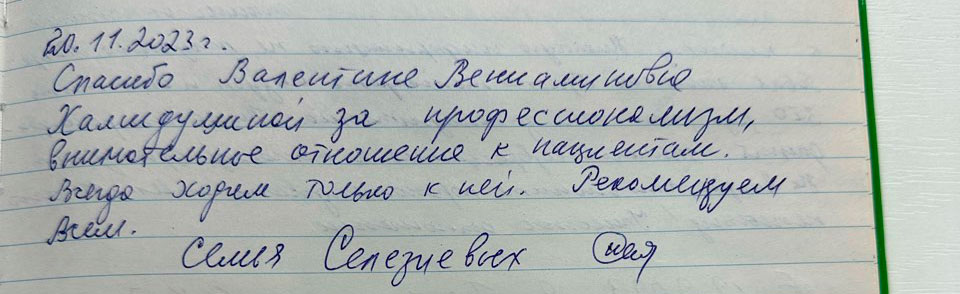 20.11.2023г.
Спасибо Валентине Вениаминовне
за профессионализм,
внимательное отношение к пациентам.
Всегда ходим только к ней. Рекомендуем
Всем.
Семья Селезневых